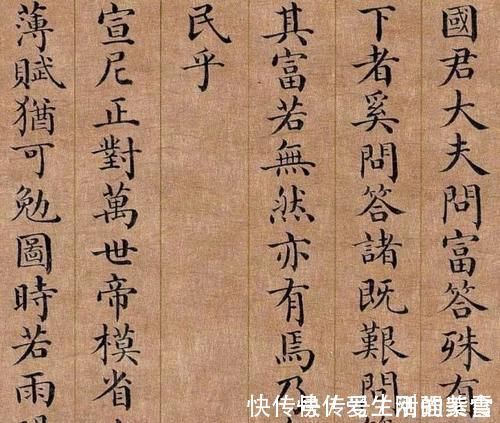 國君大夫問富答殊有
下者奚問答諸既艱問
其富若無然亦有焉乃
民乎
宣尼正對萬世帝模省
薄賦猶可勉圖時若雨
快传